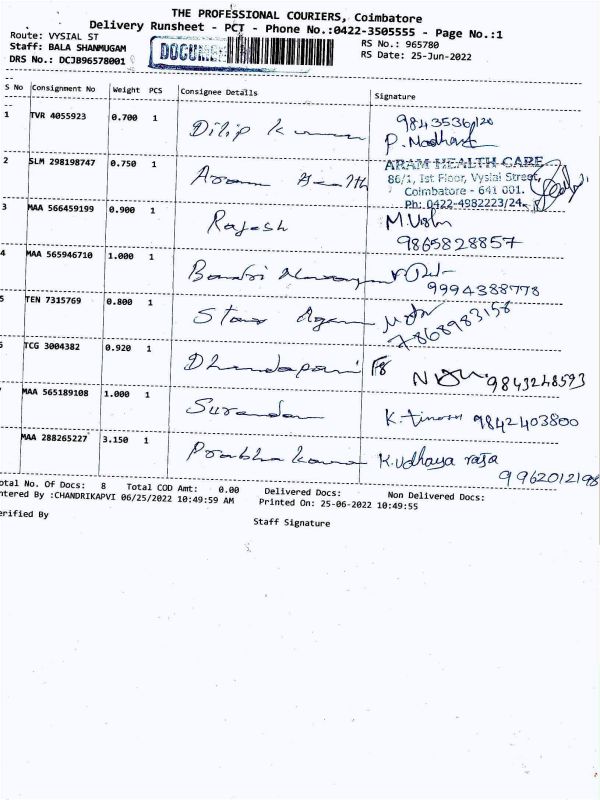 THE PROFESSIONAL COURIERS, Coimbatore
Delivery Runsheet - PCT - Phone No.:0422-3505555 - Page No.:1
Route: VYSIAL ST
RS No.: 965780
Staff: BALA SHANMUGAM
RS Date: 25-Jun-2022
DRS No.: DCJB96578001
S No Consignment No Weight PCS Consignee Details Signature
1 TVR 4055923 0.700 1 Dilip
P. Madhav
2 SLM 298198747 0.750 1 Aram Health
ARAM HEALTH CARE
86/1, Ist Floor, Vysial Street,
Coimbatore - 641 001.
Ph: 0422-4982223/24
3 MAA 566459199 0.900 1 Rajesh
9865828857
4 MAA 565946710 1.000 1
9994388778
5 TEN 7315769 0.800 1
7868983158
TCG 3004382 0.920 1 Dhandapani
9843248593
MAA 565189108 1.000 1
9842403800
MAA 288265227 3.150 1 K. Udhaya raja
9962012198
otal No. Of Docs: 8 Total COD Amt: 0.00 Delivered Docs: Non Delivered Docs:
ntered By :CHANDRIKAPVI 06/25/2022 10:49:59 AM Printed On: 25-06-2022 10:49:55
erified By
Staff Signature